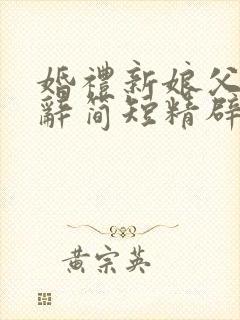 婚禮新娘父
辭简短精辟
黄宗英